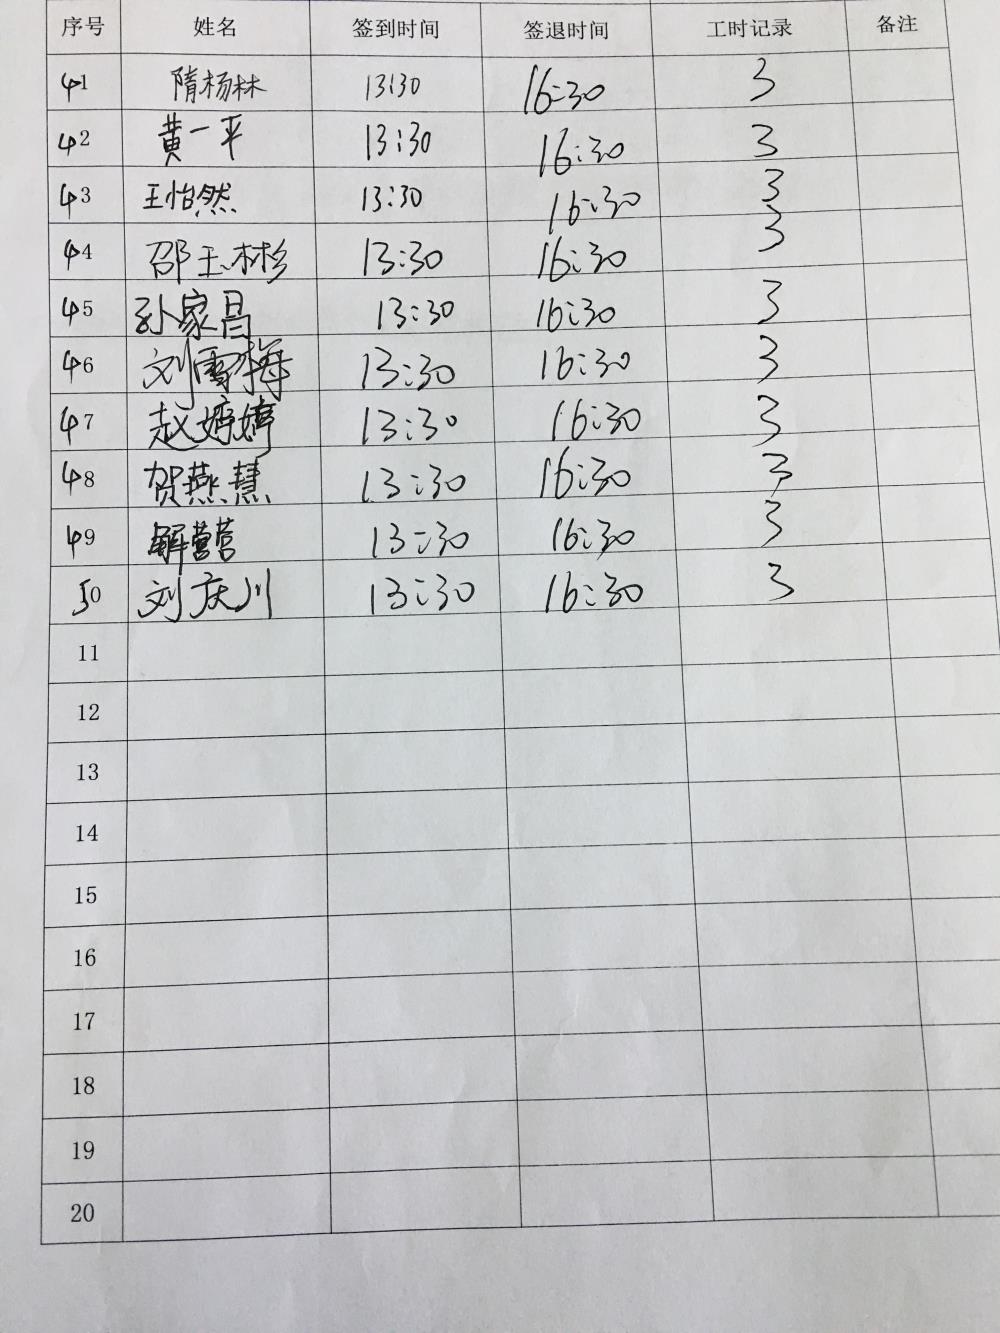 序号 姓名 签到时间 签退时间 工时记录 备注
41 隋杨林 13:30 16:30 3
42 黄一平 13:30 16:30 3
43 王怡然 13:30 16:30 3
44 邵玉彬 13:30 16:30 3
45 孙家昌 13:30 16:30 3
46 刘雪梅 13:30 16:30 3
47 赵婷婷 13:30 16:30 3
48 贺燕慧 13:30 16:30 3
49 解营营 13:30 16:30 3
50 刘庆川 13:30 16:30 3
11
12
13
14
15
16
17
18
19
20